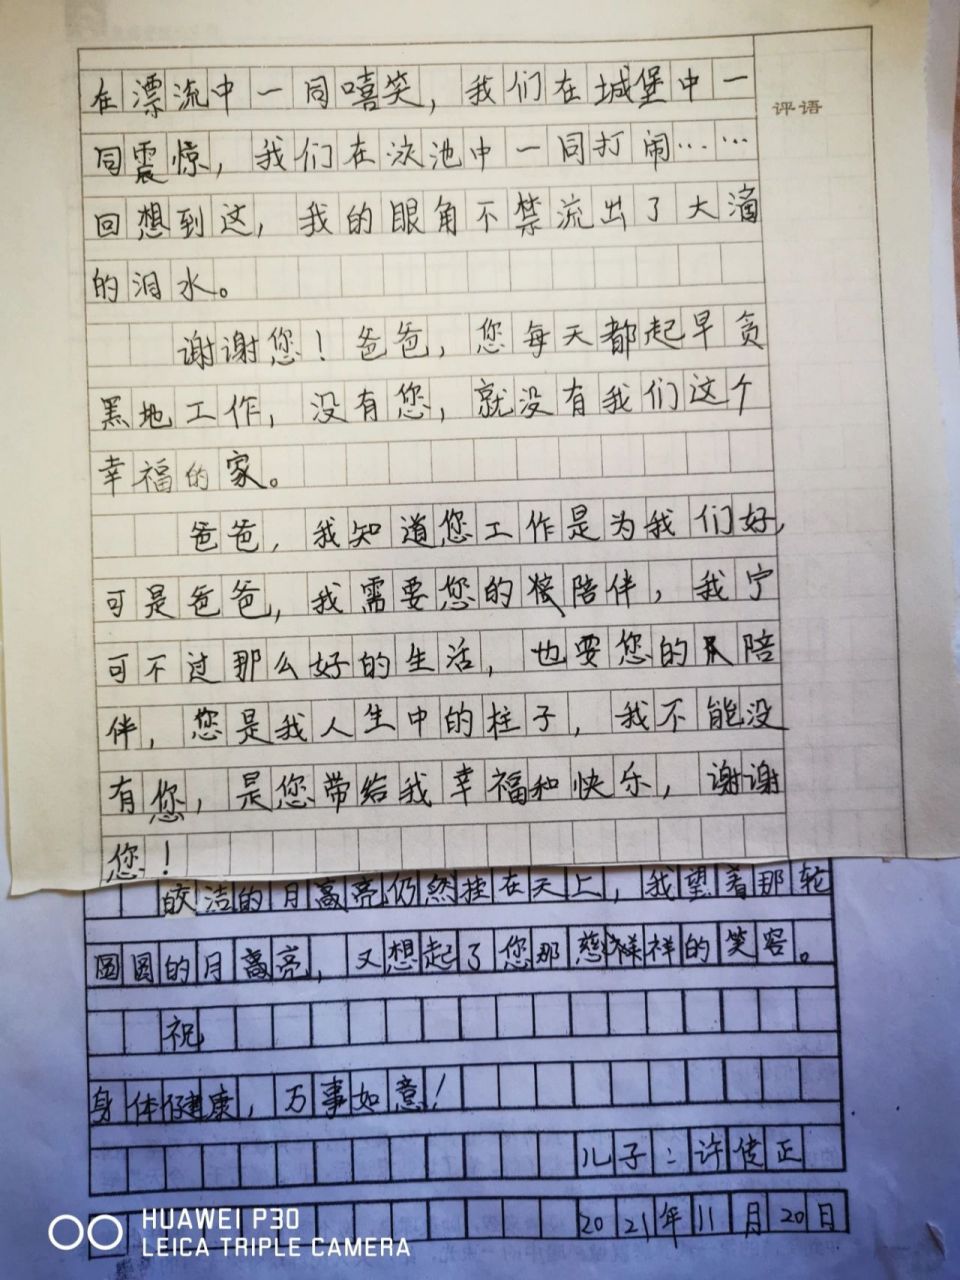 在漂流中一同嘻笑，我们在城堡中一
评语
同震惊，我们在泳池中一同打闹……
回想到这，我的眼角不禁流出了大滴
的泪水。
谢谢您！爸爸，您每天都起早贪
黑地工作，没有您，就没有我们这个
幸福的家。
爸爸，我知道您工作是为我们好，
可是爸爸，我需要您的陪伴，我宁
可不过那么好的生活，也要您的陪
伴，您是我人生中的柱子，我不能没
有您，是您带给我幸福和快乐，谢谢
您！
皎洁的月亮仍然挂在天上，我望着那轮
圆圆的月亮，又想起了您那慈祥的笑容。
祝
身体健康，万事如意！
儿子：许正
2021年11月20日
HUAWEI P30
LEICA TRIPLE CAMERA